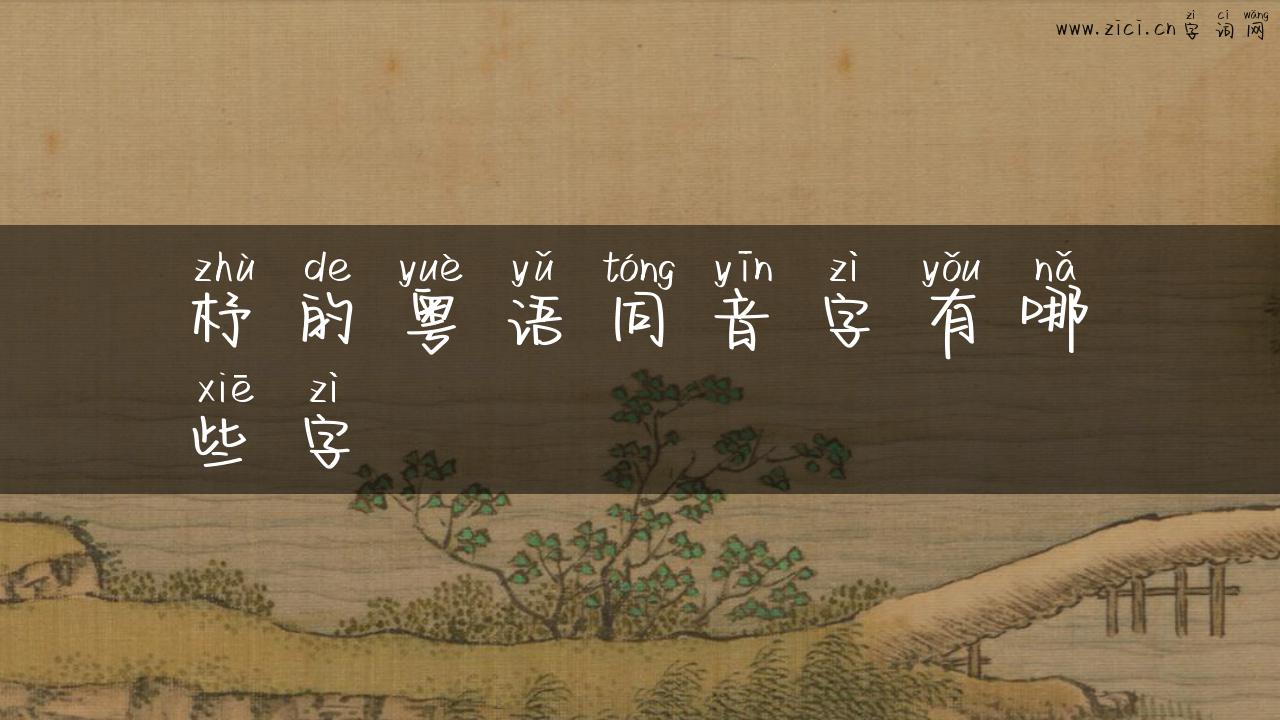 zì cí wǎng
www.zici.cn 字词网
zhù de yuè yǔ tóng yīn zì yǒu nǎ
杼的粤语同音字有哪
xiē zì
些字